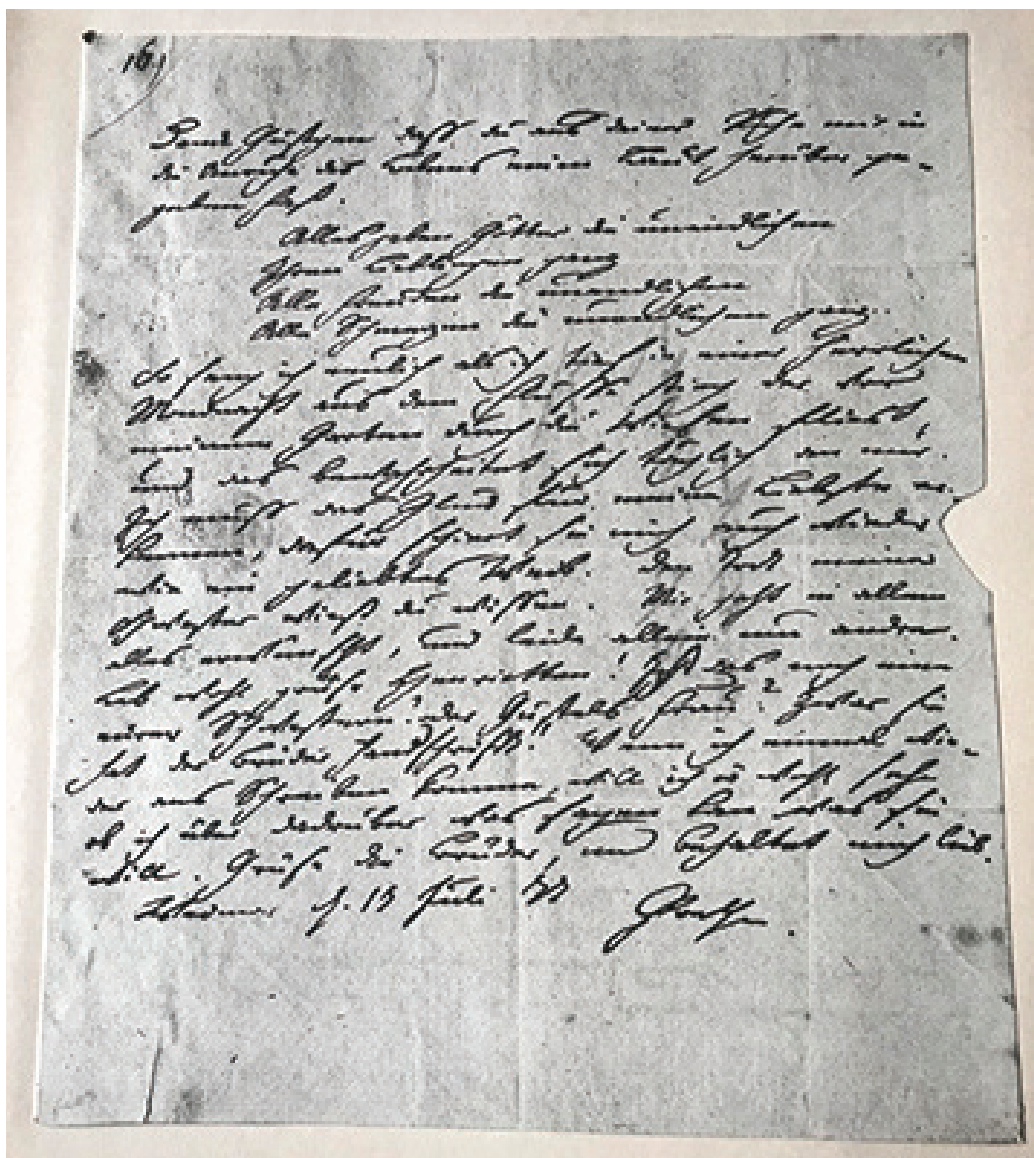 Danck Gustgen dass du aus deiner Ruhe mir in
die Unruhe des Lebens einen Laut herüber ge-
geben hast.
Alles geben Götter die unendlichen
Ihren Lieblingen ganz
Alle Freuden die unendlichen
Alle Schmerzen die unendlichen ganz.
So sang ich neulich als ich tief in einer herrlichen
Mondnacht aus dem Flusse stieg der vor
meinem Garten durch die Wiesen fliest,
und das bewahrheitet sich täglich an mir.
Ich muss das Glück für meine Liebste er-
kennen, dafür schiert sie mich auch wieder
wie ein geliebtes Weib. Den Todt meiner
Schwester wirst du wissen. Mir geht in allem
alles erwünscht, und leide allein um andre.
Leb wohl grüse Henrietten! Ist das noch eine
eurer Schwestern? oder Frau? Zwar sie
hat der Brüder Handschrifft! Wenn ich einmal wie-
der ans Schreiben komme, will ich wohl sehn
ob ich über dadrüber was sagen kan was sie
will. Grüse die Brüder, und behaltet mich lieb.
Weimar d. Juli 77 Goethe.